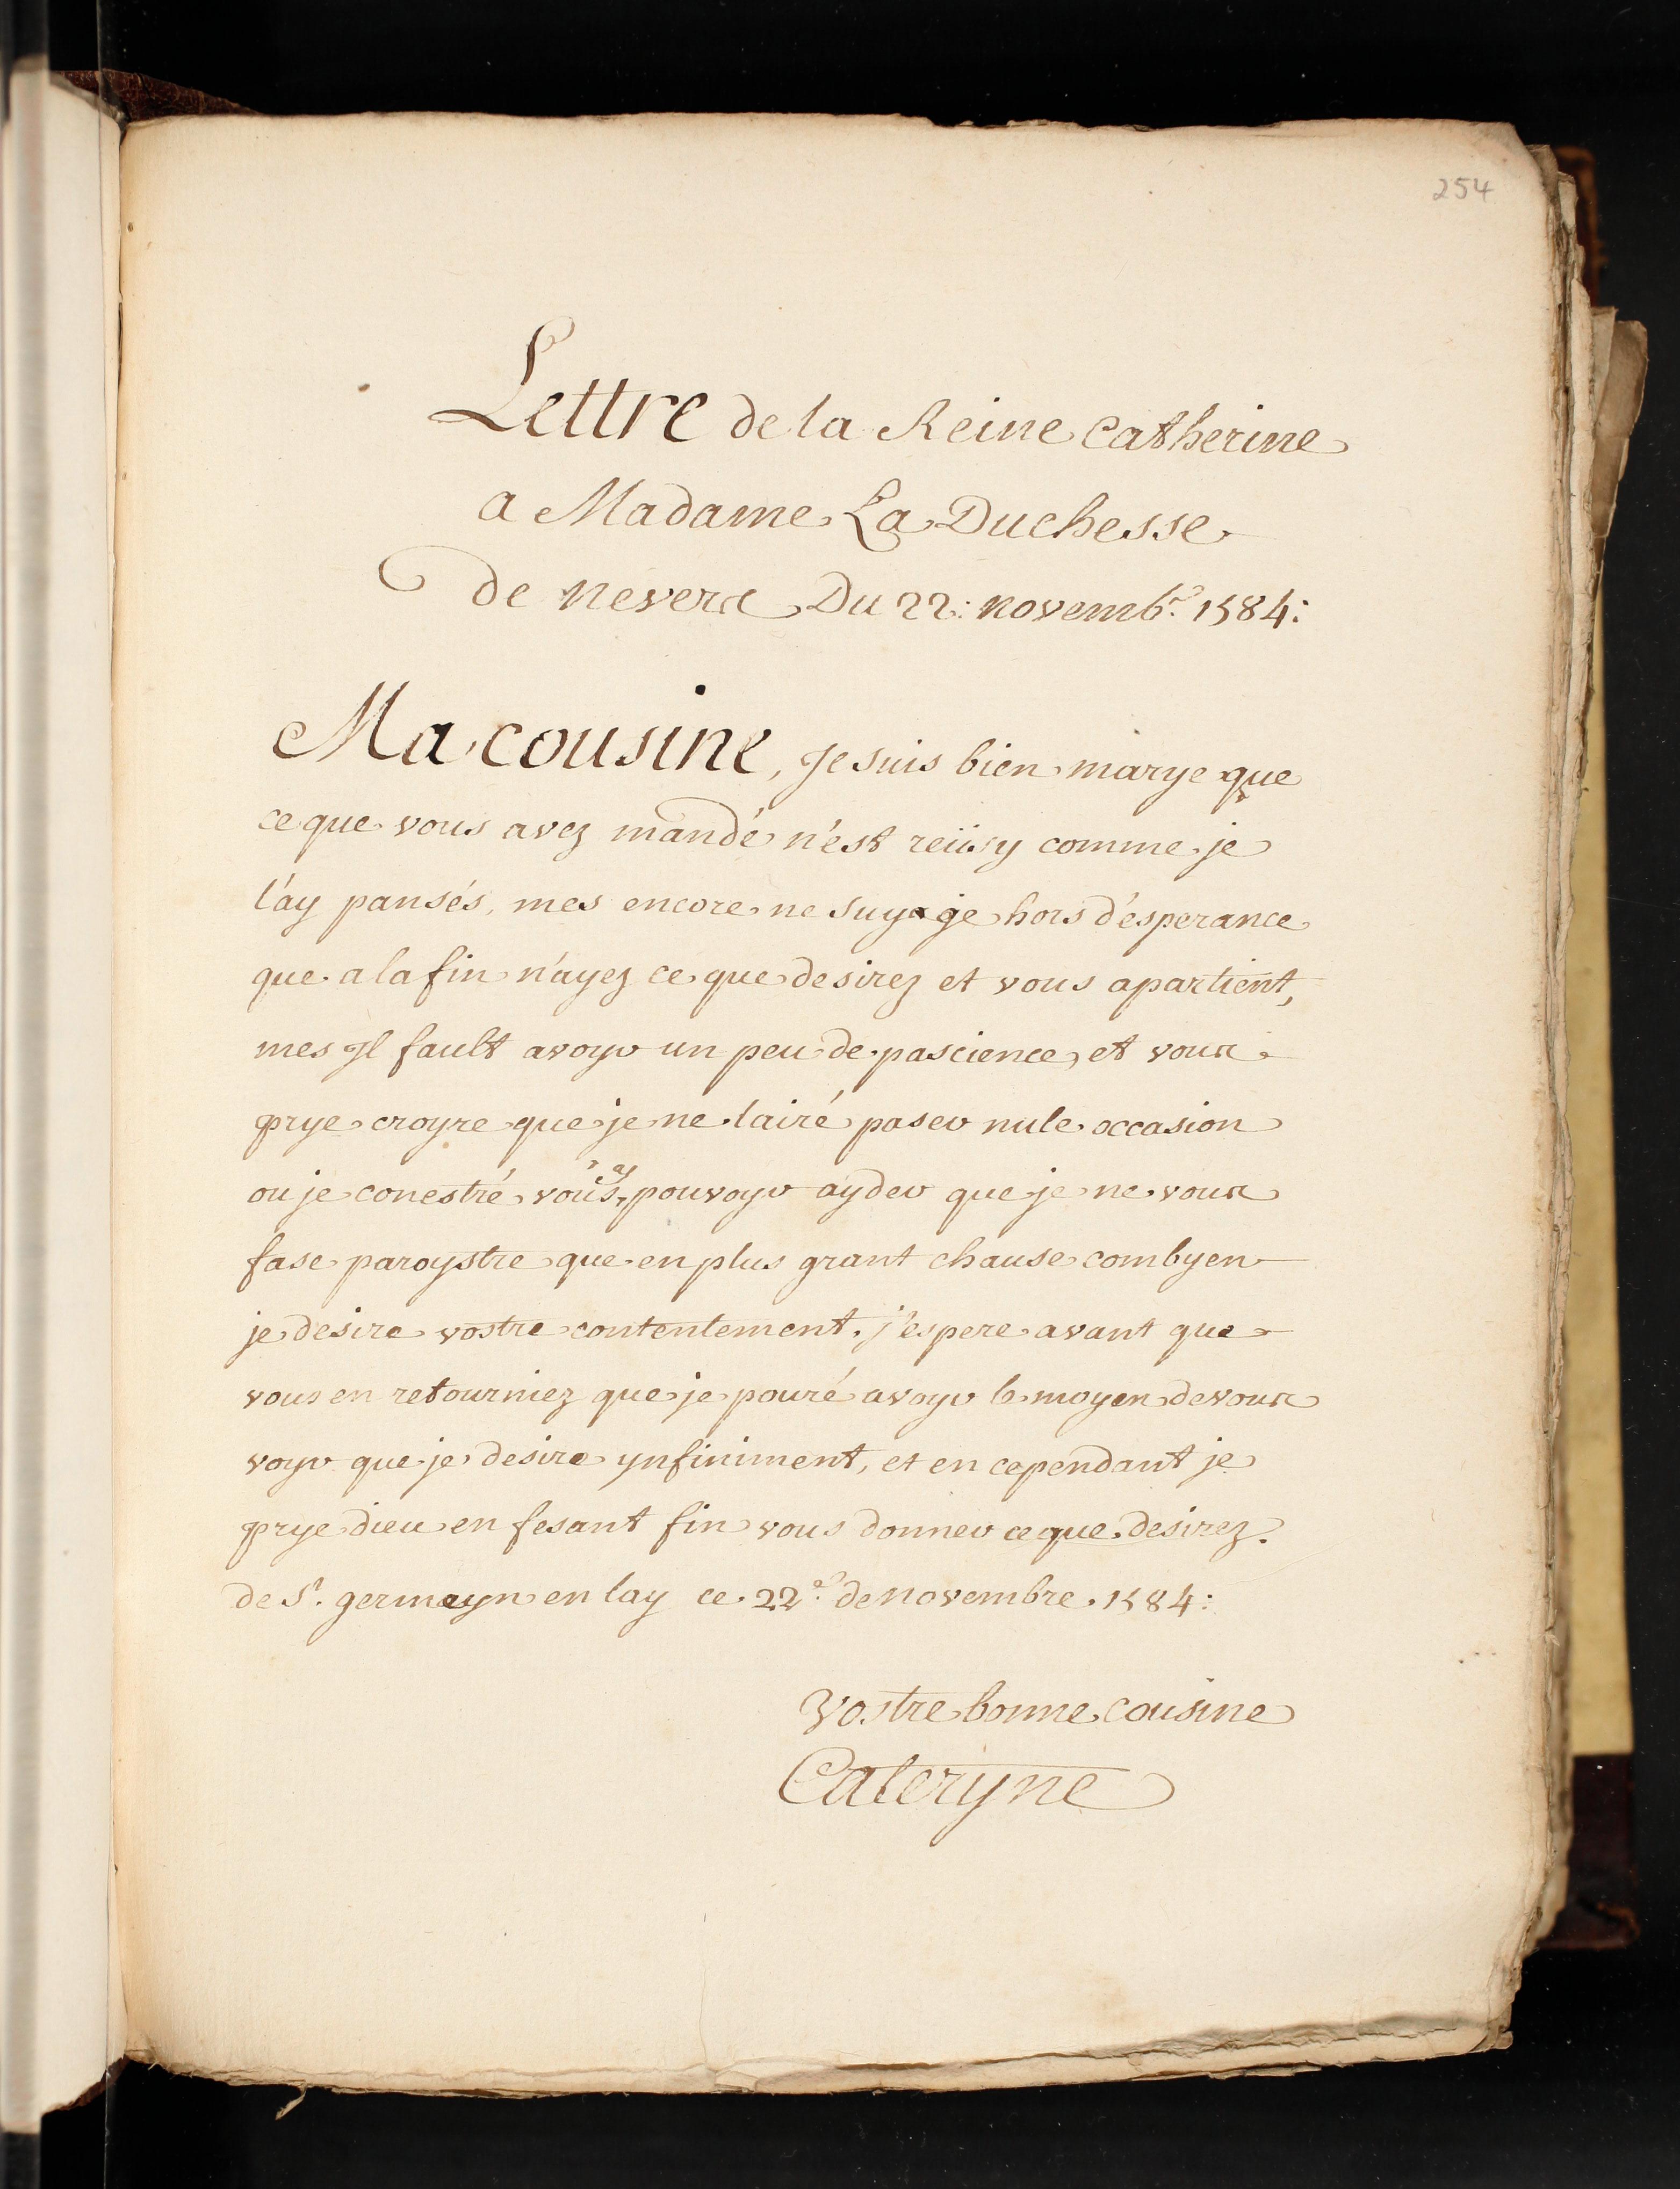 254
Lettre de la Reine Catherine
a Madame La Duchesse
de Nevers Du 22: novemb.e 1584:
Ma cousine, Je suis bien marye que
ce que vous avez mandé n'est reüsy comme je
l'ay pansés, mes encore ne suya je hors d'esperance
que a la fin n'ayez ce que desirez et vous apartient,
mes Jl fault avoyr un peu de pascience, et vous
prye croyre que je ne lairé paser nule occasion
ou je conestré vous, pouvoyr ayder que je ne vous
fase paroystre que en plus grant chause combyen
je desire vostre contentement. j'espere avant que
vous en retourniez que je pouré avoyr le moyen de vous
voyr que je desire ynfiniment, et en cependant je
prye dieu en fesant fin vous donner ce que desirez.
de St. germayn en lay ce 22.e de novembre 1584:
Vostre bonne cousine
Cateryne